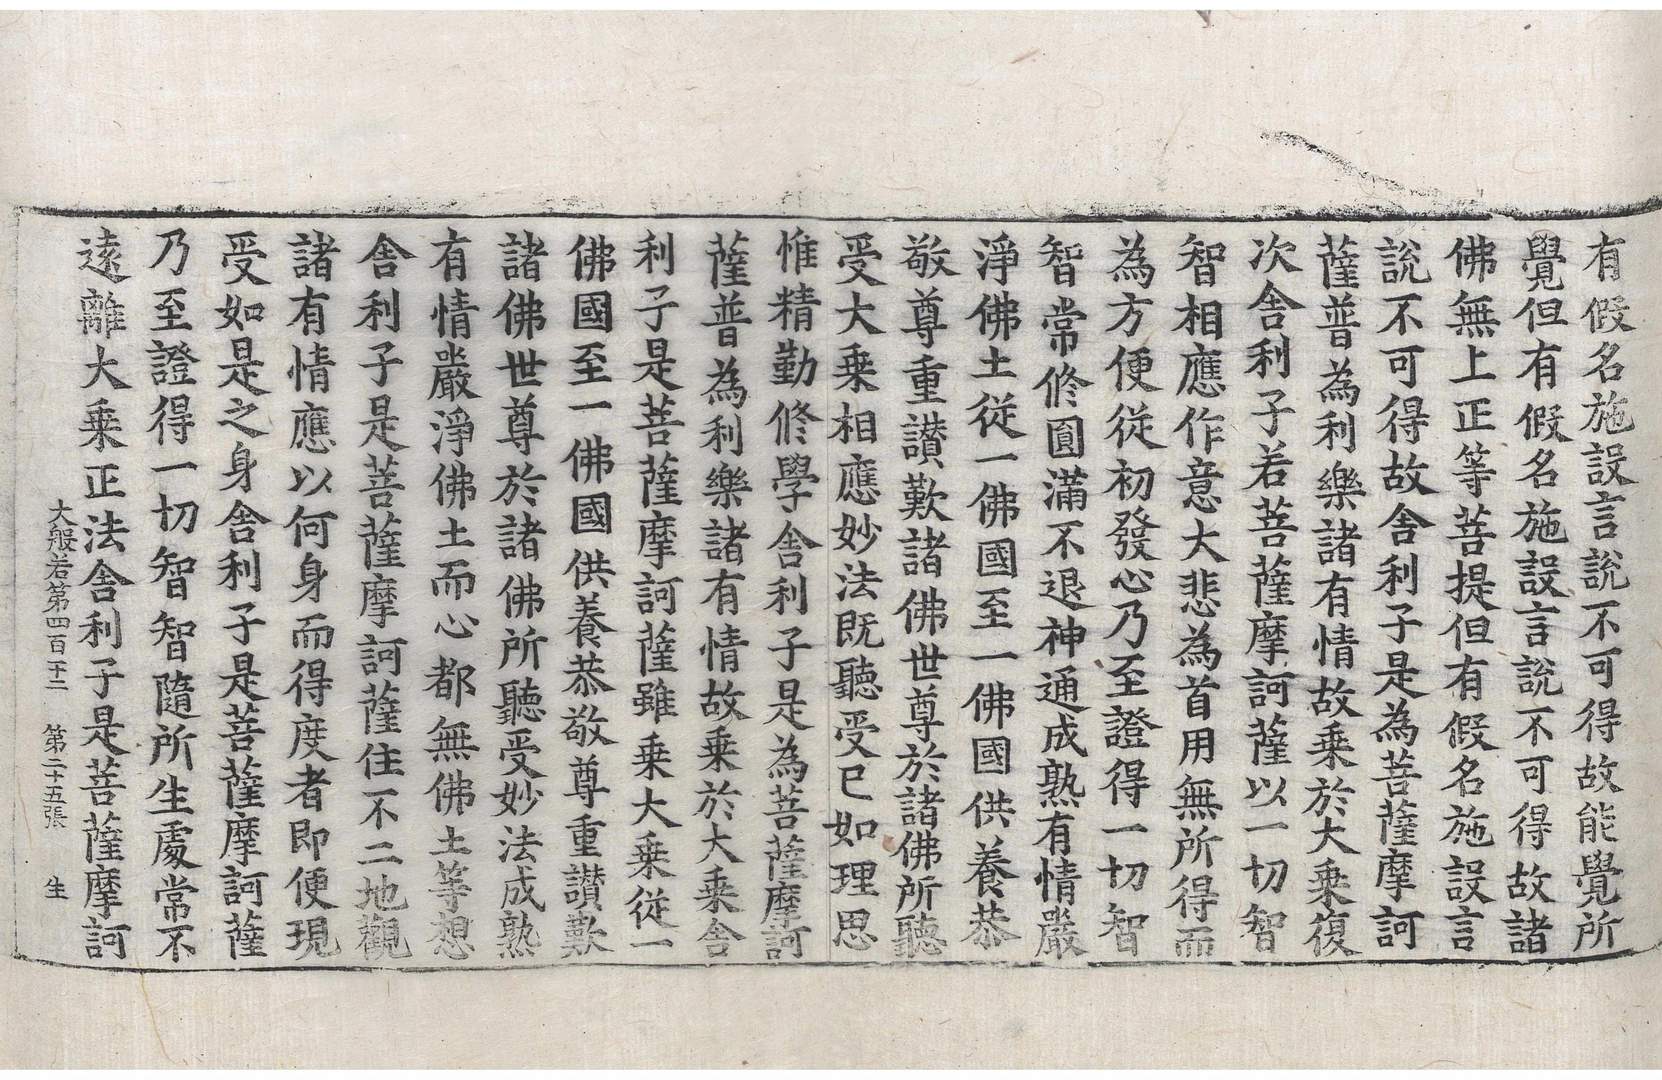 有假名施設言說不可得故能覺所
覺但有假名施設言說不可得故諸
佛無上正等菩提但有假名施設言
說不可得故舍利子是為菩薩摩訶
薩普為利樂諸有情故乘於大乘復
次舍利子若菩薩摩訶薩以一切智
智相應作意大悲為首用無所得而
為方便從初發心乃至證得一切智
智常修圓滿不退神通成熟有情嚴
淨佛土從一佛國至一佛國供養恭
敬尊重讃歎諸佛世尊於諸佛所聽
受大乘相應妙法既聽受已如理思
惟精勤修學舍利子是為菩薩摩訶
薩普為利樂諸有情故乘於大乘舍
利子是菩薩摩訶薩雖乘大乘從一
佛國至一佛國供養恭敬尊重讃歎
諸佛世尊於諸佛所聽受妙法成熟
有情嚴淨佛土而心都無佛土等想
舍利子是菩薩摩訶薩住不二地觀
諸有情應以何身而得度者即便現
受如是之身舍利子是菩薩摩訶薩
乃至證得一切智智隨所生處常不
遠離大乘正法舍利子是菩薩摩訶
大般若第四百十二 第二十五張 生